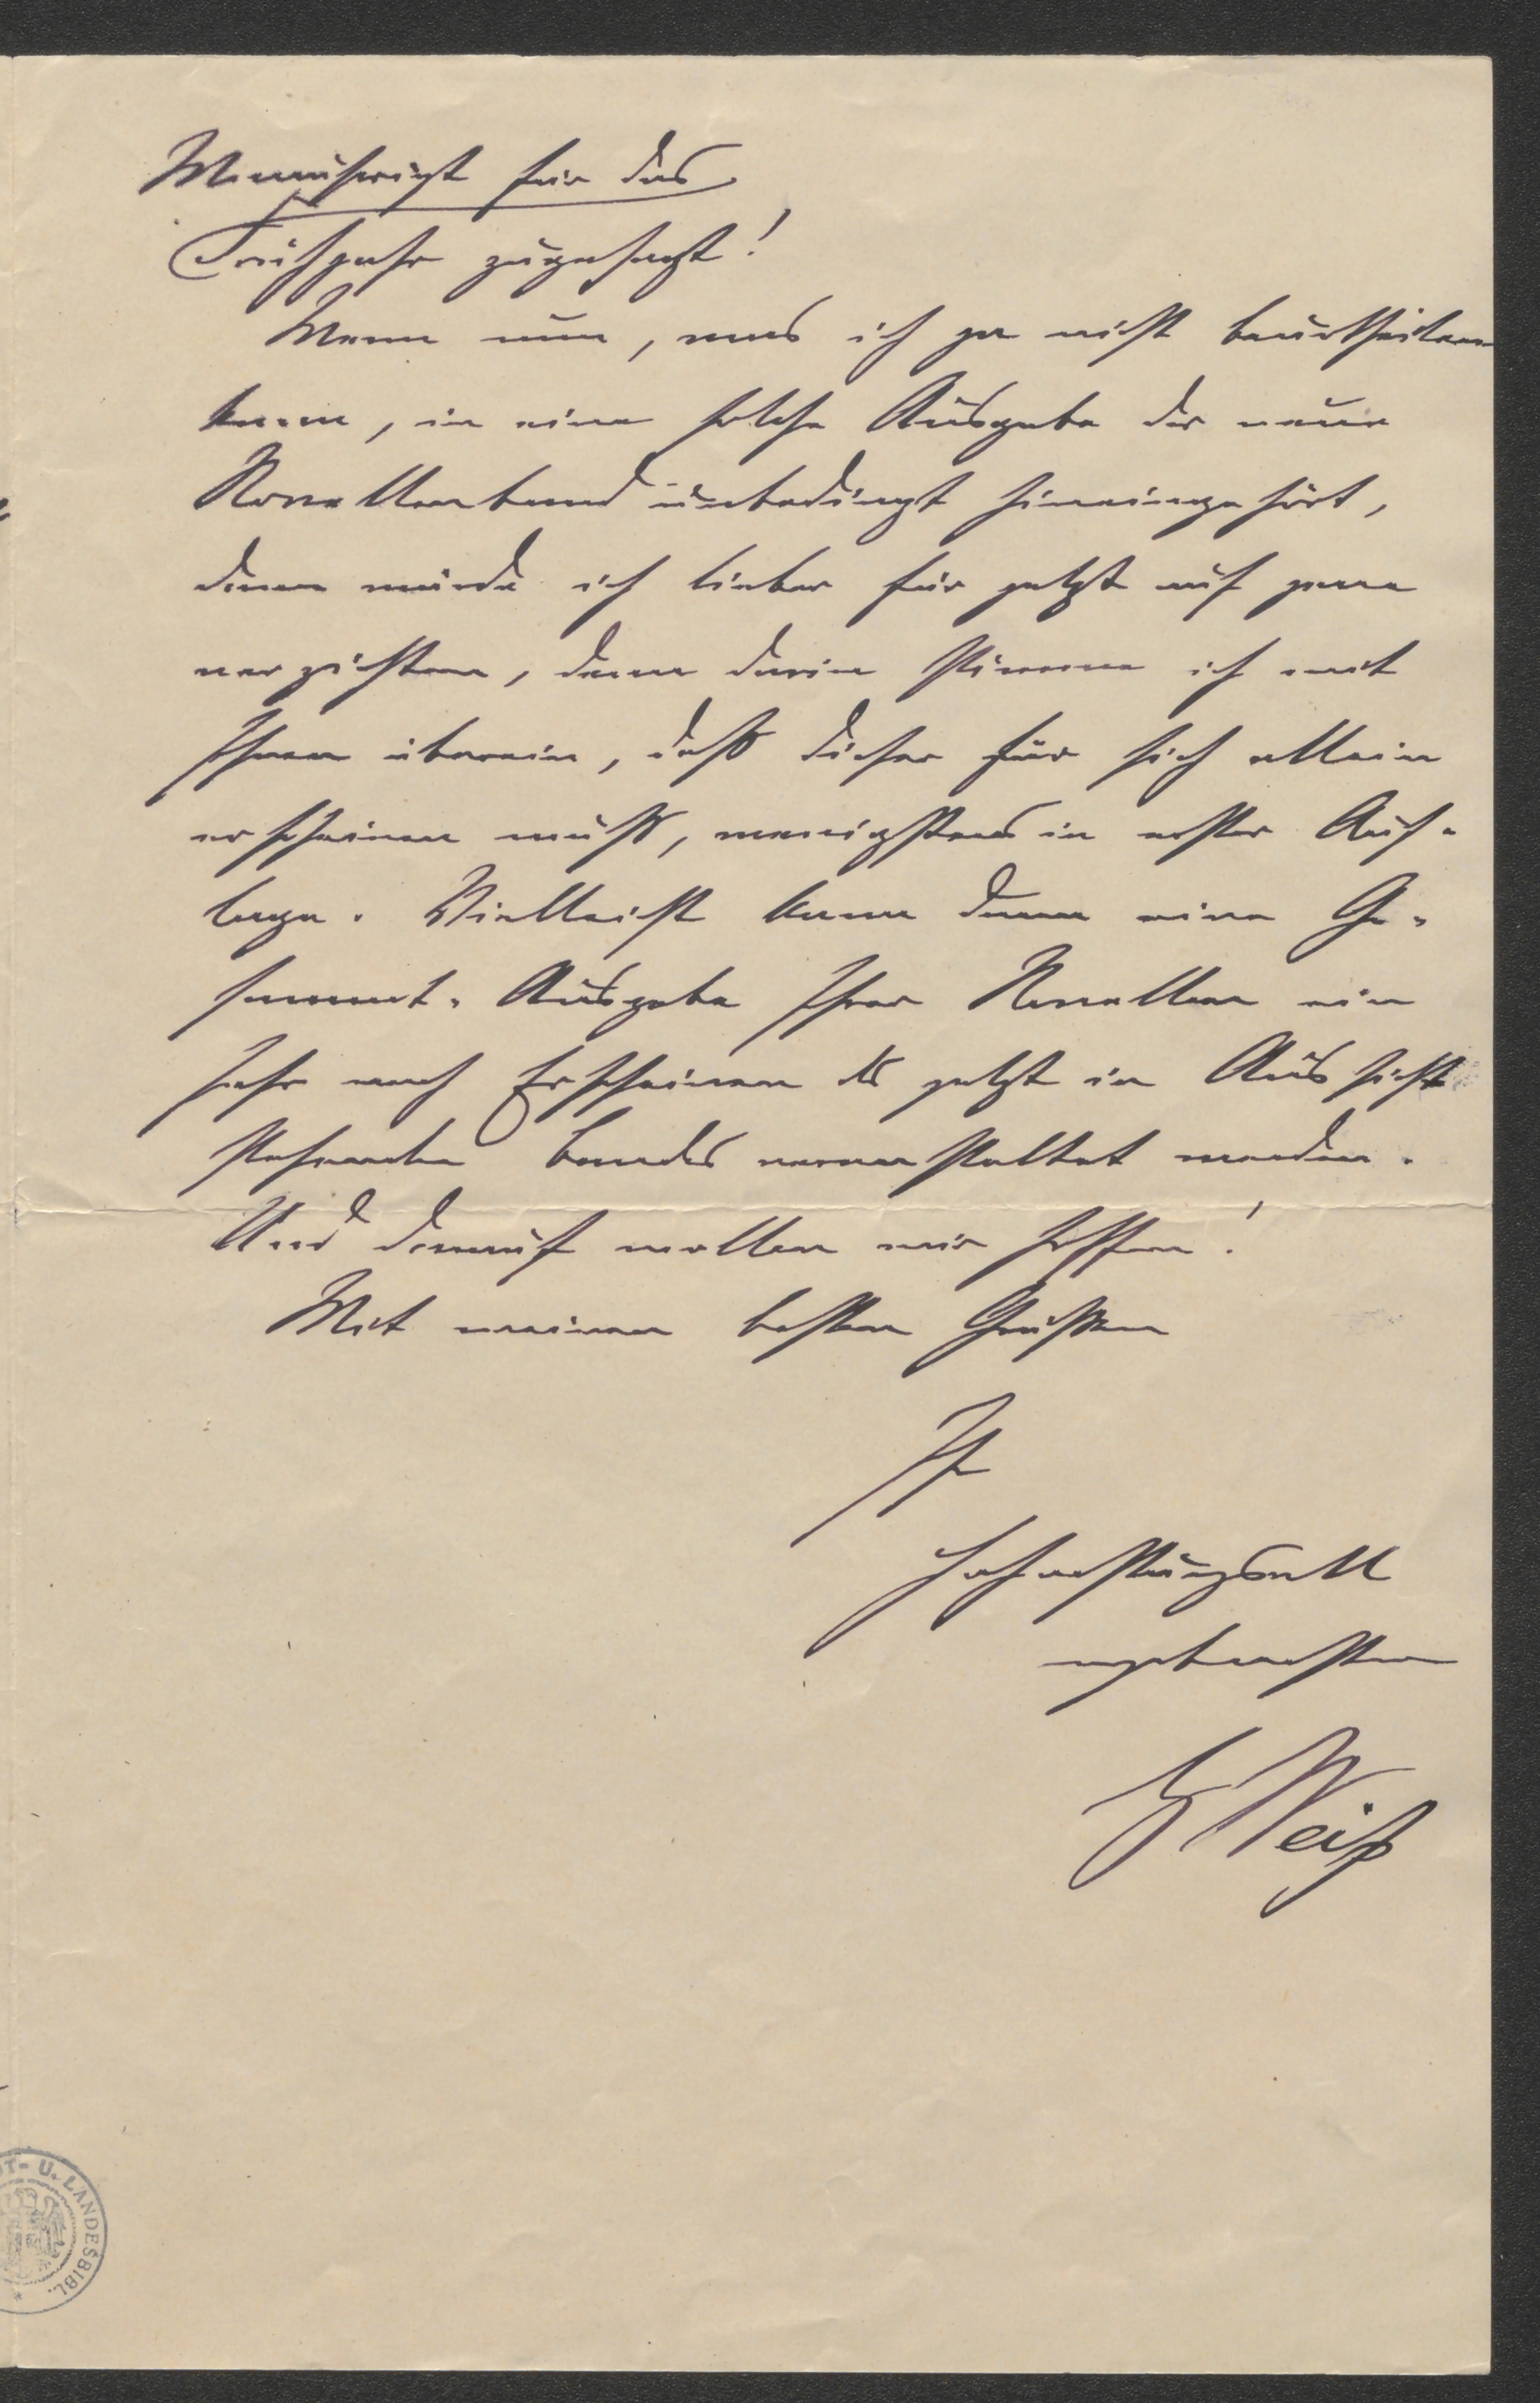 Manuskript für das
Frühjahr zugesagt!
Wenn nun, was ich ja nicht beurtheilen
kann, in eine solche Ausgabe der neue
Novellenband unbedingt hineingehört,
dann würde ich lieber für jetzt auf jene
verzichten, denn darin stimme ich mit
Ihnen überein, daß dieser für sich allein
erscheinen muß, wenigstens in erster Auf-
lage. Vielleicht kann dann eine Ge-
sammt-Ausgabe Ihrer Novellen ein
Jahr nach Erscheinen des jetzt in Aussicht
stehenden Bandes veranstaltet werden.
Und darauf wollen wir hoffen!
Mit meinen besten Grüßen
Ihr
hochachtungsvoll
ergebenster
Weiß
T- U. LANDESBIBL.